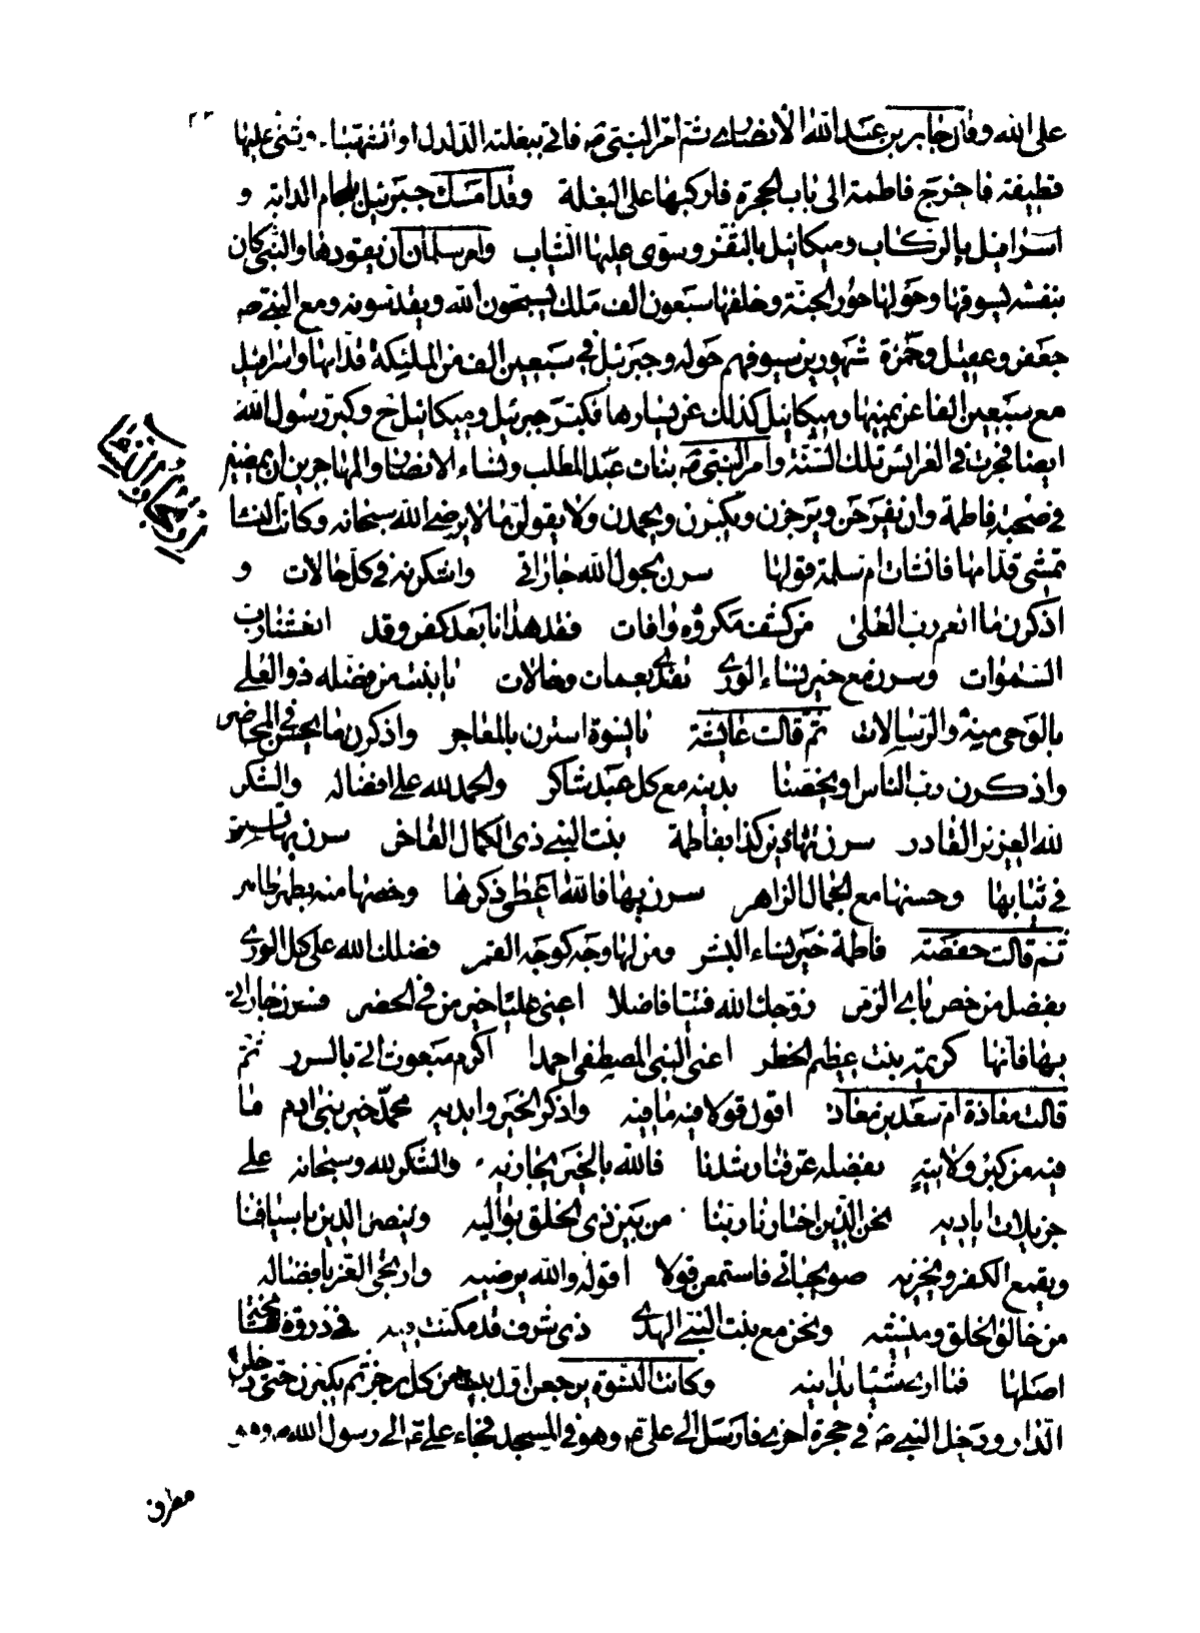 على الله وقال جابر بن عبد الله الأنصارى ثم امر النبى ص فاتى ببغلته الدلدل او الشهباء وثنى عليها
قطيفة فاخرج فاطمة الى باب الحجرة فاركبها على البغلة وقد امسك جبرئيل بلجام الدابة و
اسرافيل بالركاب وميكائيل بالثفر وسوى عليها الثياب وامر سلمان ان يقودها والنبى كان
بنفسه يسوقها وحولها حور الجنة وخلفها سبعون الف ملك يسبحون الله ويقدسونه ومع النبى ص
جعفر وعقيل وحمزة شهورين سيوفهم حوله وجبرئيل فى سبعين الف من الملئكة قدامها واسرافيل
مع سبعين الفا عن يمينها وميكائيل كذلك عن يسارها فكبر جبرئيل وميكائيل وكبر رسول الله
ايضا فجرت فى العرائس تلك السنة وامر النبى ص بنات عبد المطلب ونساء الانصار والمهاجرين ان يمضين
فى صحبة فاطمة وان يفرحن ويرجزن ويكبرن ويحمدن ولا يقولن ما لا يرضى الله سبحانه وكانت النساء
تمشى قدامها فانشات ام سلمة قولها سرن بحول الله جاراتى واشكرنه فى كل حالات و
اذكرن ما انعم رب العلى من كشف مكروه وافات فقد هدانا بعد كفر وقد انعشنا رب
السموات وسرن مع خير نساء الورى تفدى بعمات وخالات يا بنت من فضله ذو العلى
بالوحى منه والرسالات ثم قالت عايشة يا نسوة استرن بالمعاجر واذكرن ما يحسن فى المحاضر
واذكرن رب الناس اذ يخصنا بدينه مع كل عبد شاكر والحمد لله على افضاله والشكر
لله العزيز القادر سرن بفاطمة بنت النبى ذى الكمال الفاخر سرن بها
فى ثيابها وحسنها مع الجمال الزاهر سرن بها فالله اعطى ذكرها وخصها منه بطهر طاهر
ثم قالت حفصة فاطمة خير نساء البشر ومن لها وجه كوجه القمر فضلك الله على كل الورى
بفضل من خص باى الزمر زوجك الله فتيا فاضلا اعنى عليا خير من فى الحضر فسرن جاراتى
بها فانها كريمة بنت عظيم الخطر اعنى النبى المصطفى احمدا اكرم مبعوث اتى بالسور ثم
قالت معاذة ام سعد بن معاذ اقول قولا فيه ما فيه واذكر الخير وابديه محمد خير بنى ادم ما
فيه من كبر ولا تيه بفضله عرفنا رشدنا فالله بالخير يجازيه والشكر لله وسبحانه على
جزيلات اياديه نحن الذين اختارنا ربنا من بين ذى الخلق نواليه وينصر الدين باسيافنا
ويقمع الكفر ويخزيه صويحباتى فاستمعن قولا اقوله والله يرضيه وارتجى العز بافضاله
من خالق الخلق ومنشيه ونحن مع بنت النبى الهدى ذى شرف قد مكنت فيه فى ذروة
اصلها فما ارى شيئا يدانيه وكانت النسوة يرجعن اول بيت من كل رجز ثم يكبرن حتى دخلن
الدار ودخل النبى ص فى حجرة اخرى فارسل الى على ع وهو فى المسجد فجاء على ع الى رسول الله ص وهو
مطرق